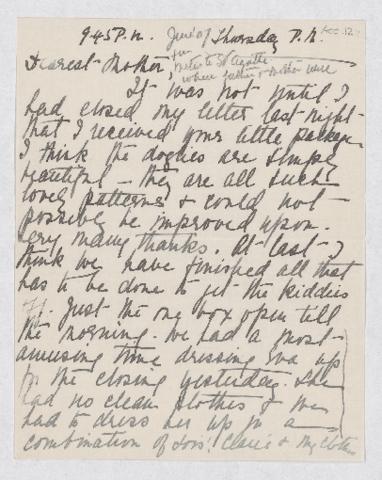 9.45 P.M. June 9 Thursday P.M.
for
Dearest Mother, Peter to St Agathe
where father & mother were
It was not until I
had closed my letter last night
that I received your little package
I think the doylies are simply
beautiful - they are all such
lovely patterns & could not
possibly be improved upon.
Very many thanks. At last I
think we have finished all that
has to be done to get the kiddies
off. Just the one box open till
the morning. We had a most
amusing time dressing Eva up
for the closing yesterday. She
had no clean clothes & we
had to dress her up in a
combination of Lois', Claire & my clothes